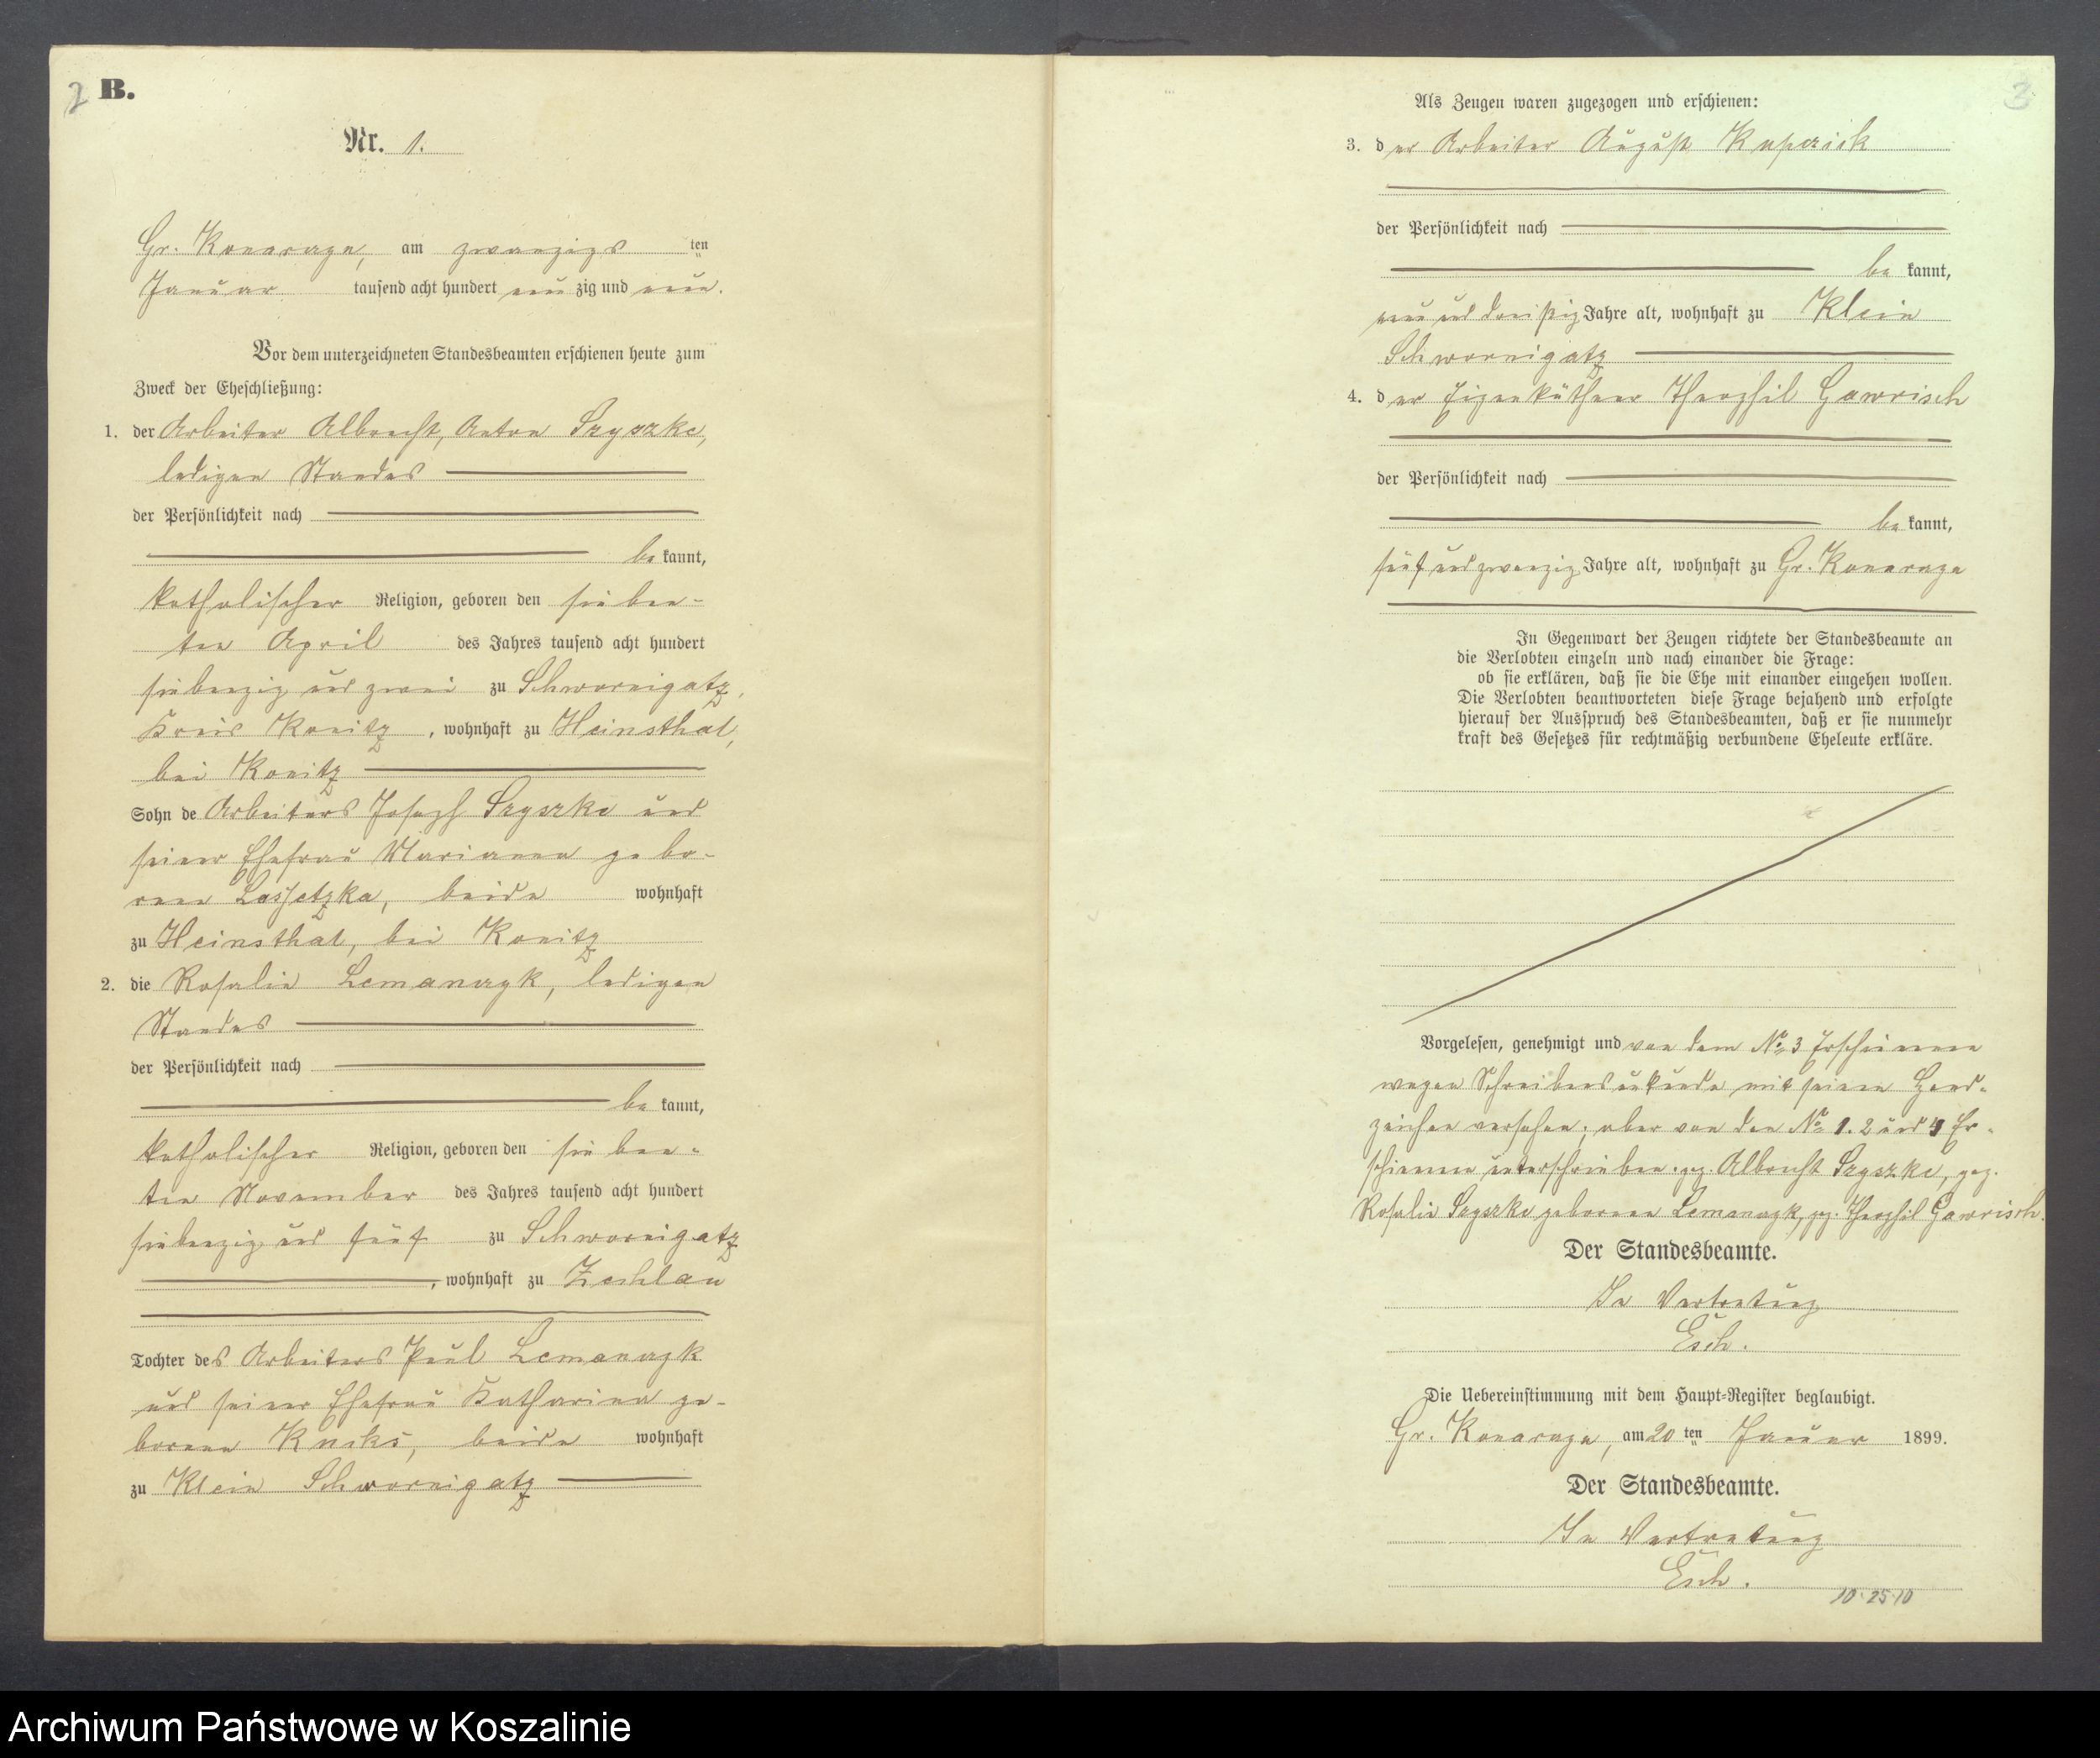 2 B.
Nr. 1.
Gr. Konarczyn, am zwanzigsten
Januar tausend acht hundert neunzig und neun.
Vor dem unterzeichneten Standesbeamten erschienen heute zum
Zweck der Eheschließung:
1. der Arbeiter Albrecht, Anton
ledigen Standes
der Persönlichkeit nach
bekannt,
katholischer Religion, geboren den sieben-
ten April des Jahres tausend acht hundert
siebenzig und zwei zu Schwornigatz,
Kreis Konitz, wohnhaft zu Heinsthal,
bei Konitz
Sohn de Arbeiters Joseph und
seiner Ehefrau Marianna gebo-
renen beide wohnhaft
zu Heinsthal, bei Konitz
2. die Rosalia Lemanczyk, ledigen
Standes
der Persönlichkeit nach
bekannt,
katholischer Religion, geboren den sieben-
ten November des Jahres tausend acht hundert
siebenzig und fünf zu Schwornigatz
, wohnhaft zu Zechlau
Tochter des Arbeiters Paul Lemanczyk
und seiner Ehefrau Katharina ge-
borenen beide wohnhaft
zu Klein Schwornigatz
3
Als Zeugen waren zugezogen und erschienen:
3. der Arbeiter August
der Persönlichkeit nach
bekannt,
neun und dreißig Jahre alt, wohnhaft zu Klein
Schwornigatz
4. der Eigenkäthner Theophil Gawrisch
der Persönlichkeit nach
bekannt,
fünf und zwanzig Jahre alt, wohnhaft zu Gr. Konarczyn
In Gegenwart der Zeugen richtete der Standesbeamte an
die Verlobten einzeln und nach einander die Frage:
ob sie erklären, daß sie die Ehe mit einander eingehen wollen.
Die Verlobten beantworteten diese Frage bejahend und erfolgte
hierauf der Ausspruch des Standesbeamten, daß er sie nunmehr
kraft des Gesetzes für rechtmäßig verbundene Eheleute erkläre.
Vorgelesen, genehmigt und von dem No 3 Erschienenen
wegen Schreibensunkunde mit seinem Hand-
zeichen versehen, aber von den No 1. 2 und 4 Er-
schienenen unterschrieben. gez. Albrecht gez.
Rosalia geborene Lemanczyk, gez. Theophil Gawrisch.
Der Standesbeamte.
In Vertretung
Esch.
Die Uebereinstimmung mit dem Haupt-Register beglaubigt.
Gr. Konarczyn, am 20 ten Januar 1899.
Der Standesbeamte.
In Vertretung
Esch.
10.25.10
Archiwum Państwowe w Koszalinie